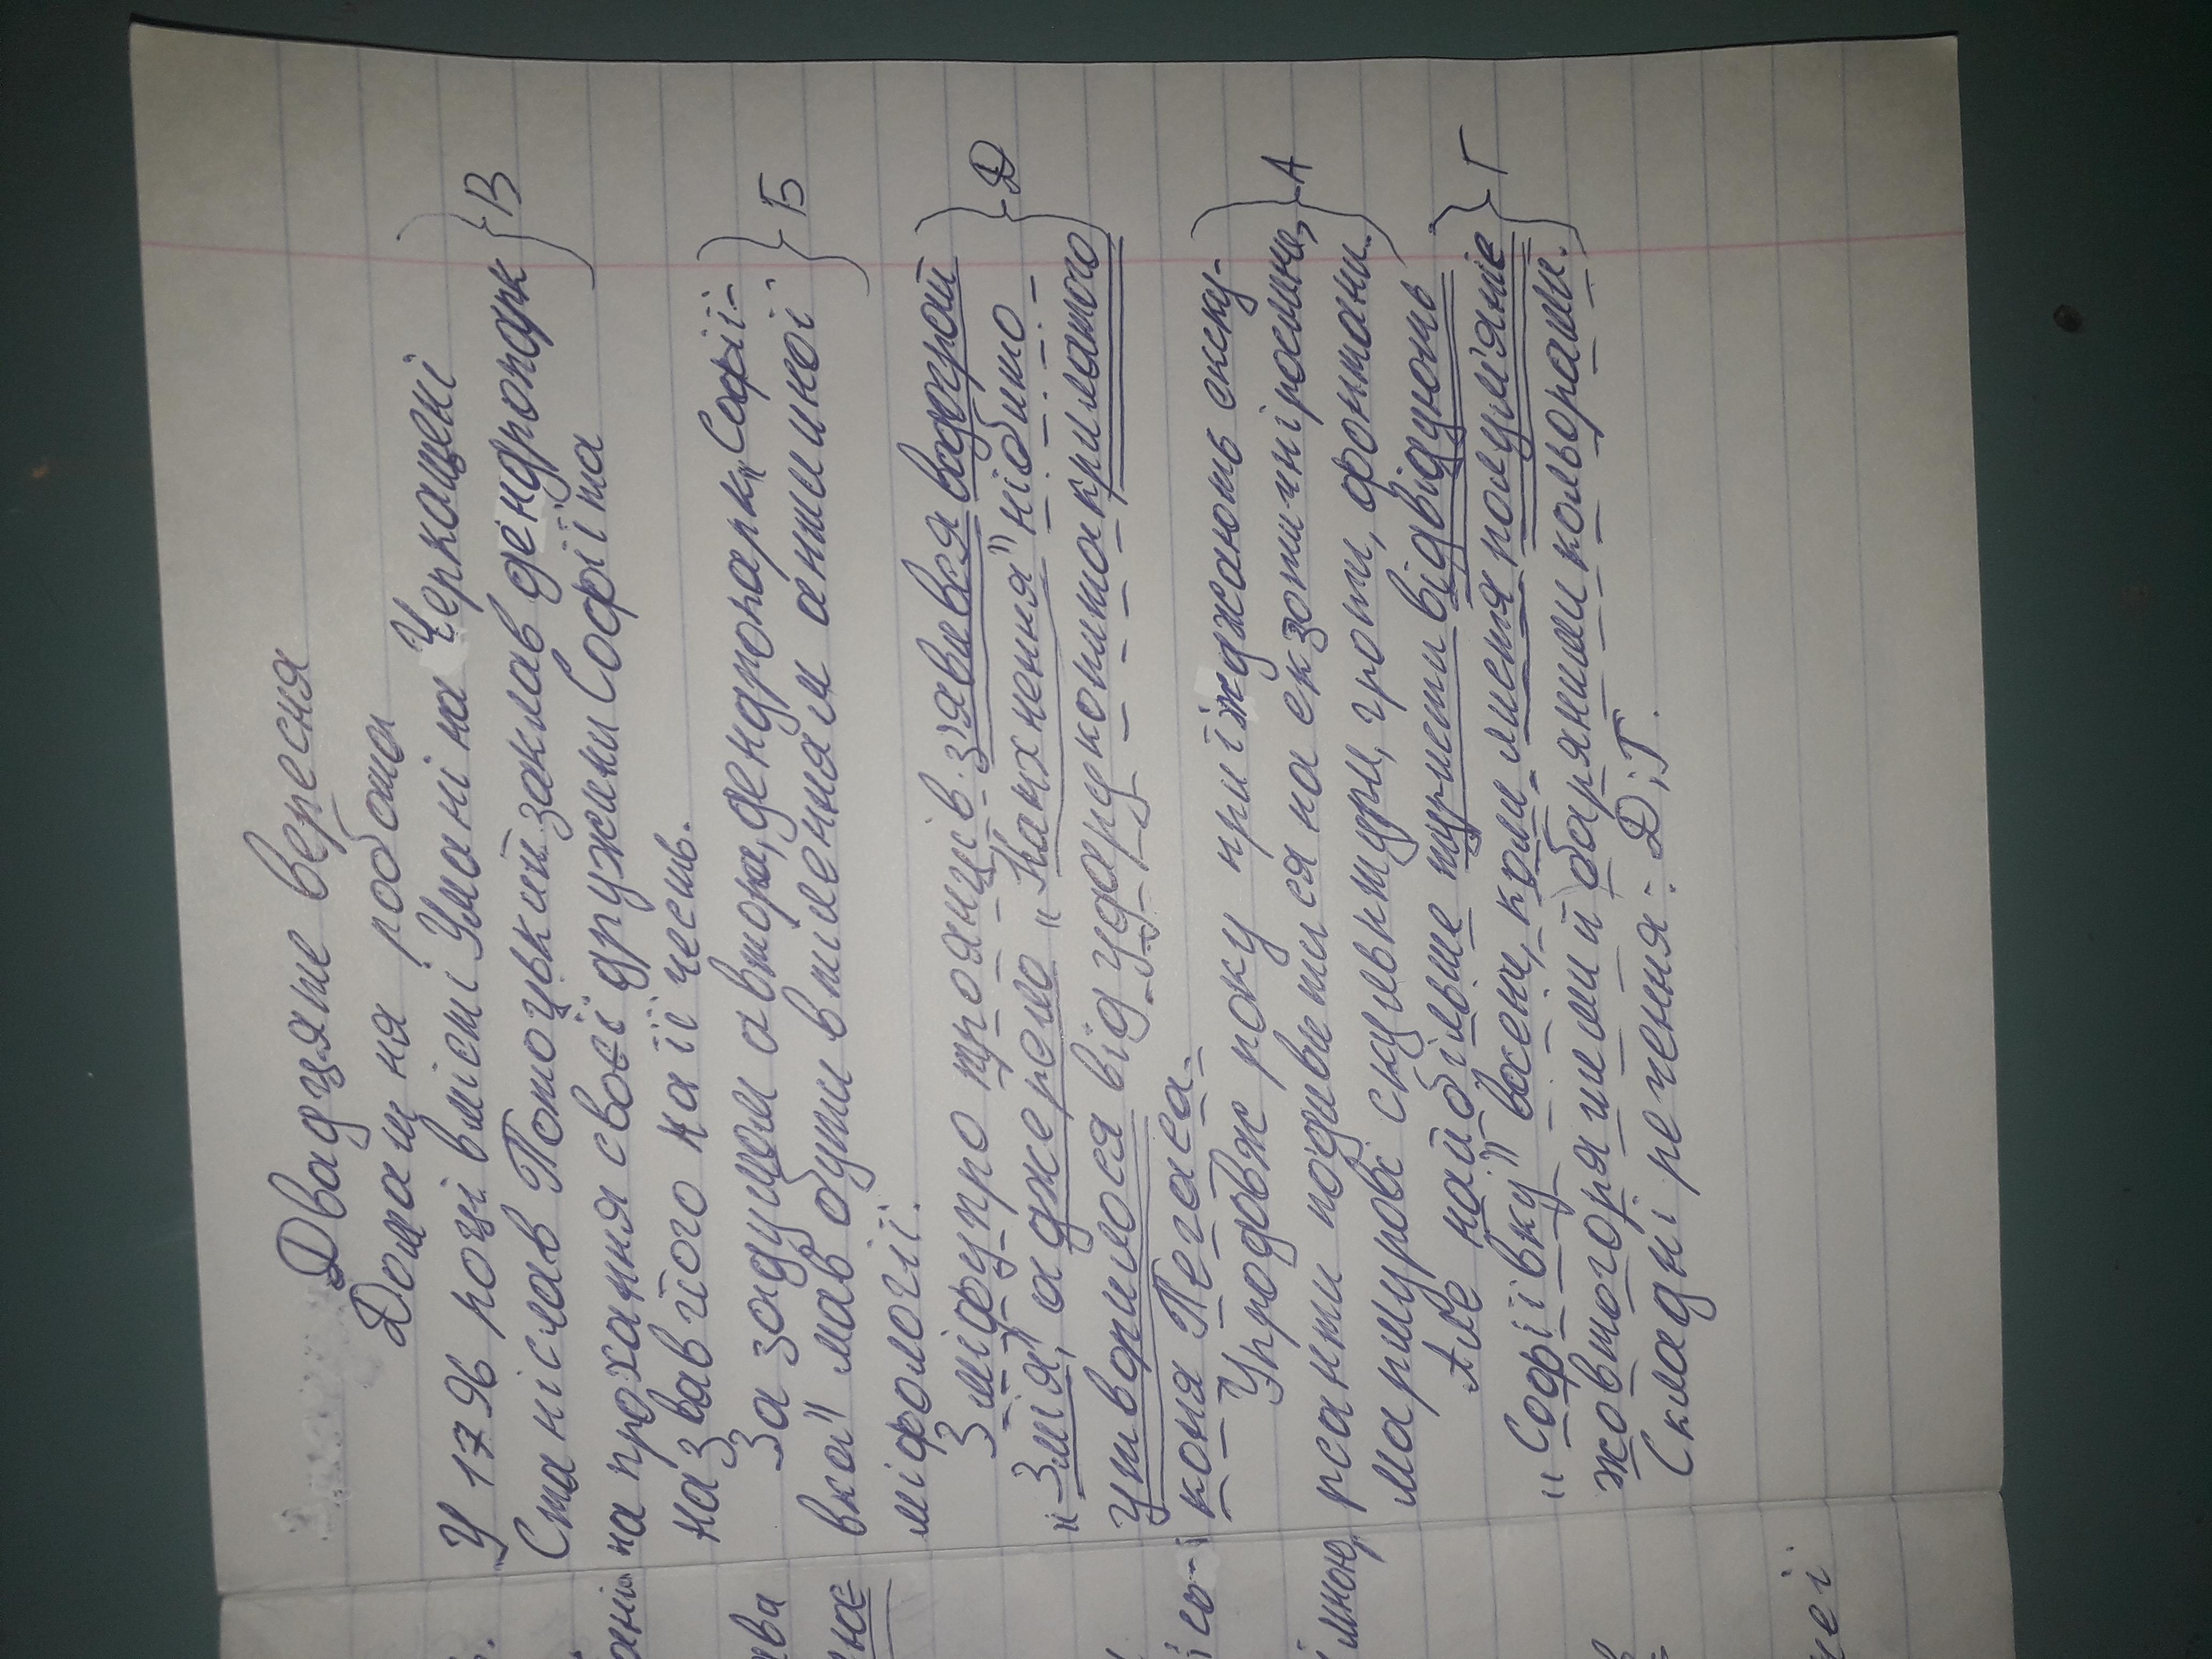 Двадцяте вересня
Домашня робота
У 1796 році в місті Умані на Черкащені
Станіслав Потоцький заклав дендропарк } В
на прохання своєї дружини Софії та
назвав його на її честь.
За задумом автора, дендропарк „Софії-
вка" мав бути втіленням античної } Б
міфології.
З міфу про троянців з'явився водограй
„Змія", а джерело „Натхнення" нібито } Д
утворилося від удару копита крилатого
коня Пегаса.
Упродовж року приїжджають екску-
рсанти подивитися на екзотичні рослини, } А
мармурові скульптури, гроти, фонтани.
Але найбільше туристи відвідують
„Софіївку" восени, коли листя полум'яніє } Г
жовтогарячими й багряними кольорами.
Складні речення: Д; Г.
ства
і со-